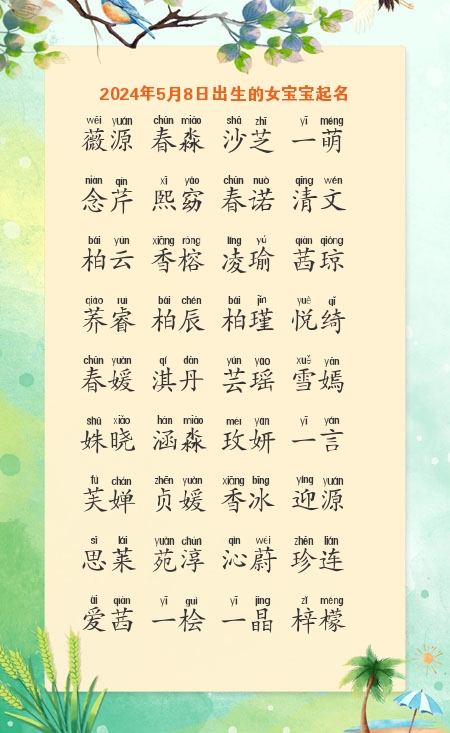 2024年5月8日出生的女宝宝起名
wēi yuán chūn miǎo shā zhī yī méng
薇源 春淼 沙芝 一萌
niàn qín xī yǎo chūn nuò qīng wén
念芹 熙窈 春诺 清文
bǎi yún xiāng róng líng yú qiàn qióng
柏云 香榕 凌瑜 茜琼
qiáo ruì bǎi chén bǎi jǐn yuè qǐ
荞睿 柏辰 柏瑾 悦绮
chūn yuàn qí dān yún yáo xuě yān
春媛 淇丹 芸瑶 雪嫣
shū xiǎo hán miǎo méi yán yī yán
姝晓 涵淼 玫妍 一言
fú chán zhēn yuàn xiāng bīng yíng yuán
芙婵 贞媛 香冰 迎源
sī lái yuàn chún qìn wèi zhēn lián
思莱 苑淳 沁蔚 珍连
ài qiàn yī guì yī jīng zǐ méng
爱茜 一桧 一晶 梓檬